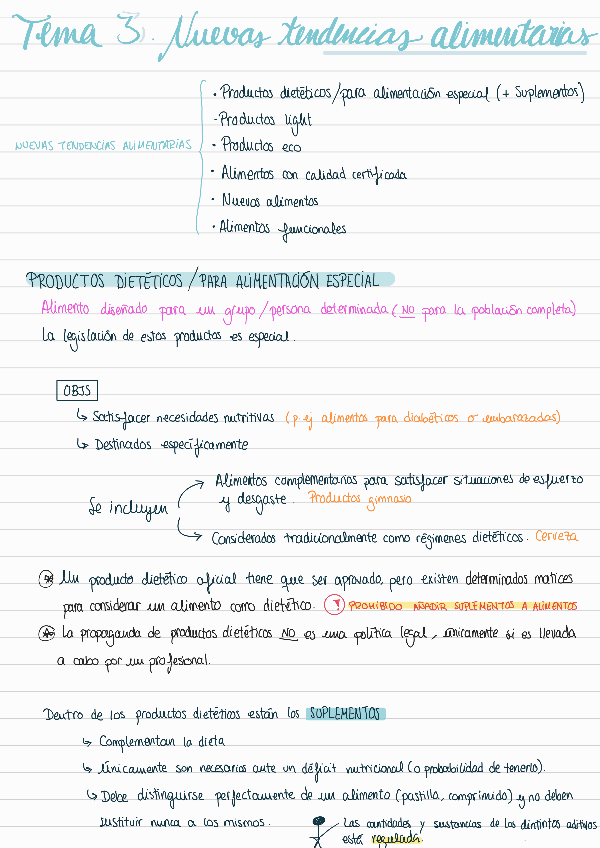 Tema 3. Nuevas tendencias alimentarias
NUEVAS TENDENCIAS ALIMENTARIAS
· Productos dietéticos/para alimentación especial (+ Suplementos)
· Productos light
· Productos eco
· Alimentos con calidad certificada
· Nuevos alimentos
· Alimentos funcionales
PRODUCTOS DIETÉTICOS / PARA ALIMENTACIÓN ESPECIAL
Alimento diseñado para un grupo/persona determinada (NO para la población completa)
La legislación de estos productos es especial.
OBJS
↳ Satisfacer necesidades nutritivas (p. ej alimentos para diabéticos o embarazadas)
↳ Destinados específicamente
Se incluyen
→ Alimentos complementarios para satisfacer situaciones de esfuerzo
y desgaste. Productos gimnasio
→ Considerados tradicionalmente como régimenes dietéticos. Cerveza
* Un producto dietético oficial tiene que ser aprovado, pero existen determinados matices
para considerar un alimento como dietético. ! PROHIBIDO AÑADIR SUPLEMENTOS A ALIMENTOS
* La propaganda de productos dietéticos NO es una política legal, únicamente si es llevada
a cabo por un profesional.
Dentro de los productos dietéticos están los SUPLEMENTOS
↳ Complementan la dieta
↳ Únicamente son necesarios ante un déficit nutricional (o probabilidad de tenerlo).
↳ Debe distinguirse perfectamente de un alimento (pastilla, comprimido) y no deben
sustituir nunca a los mismos.
Las cantidades y sustancias de los distintos aditivos
está regulada.